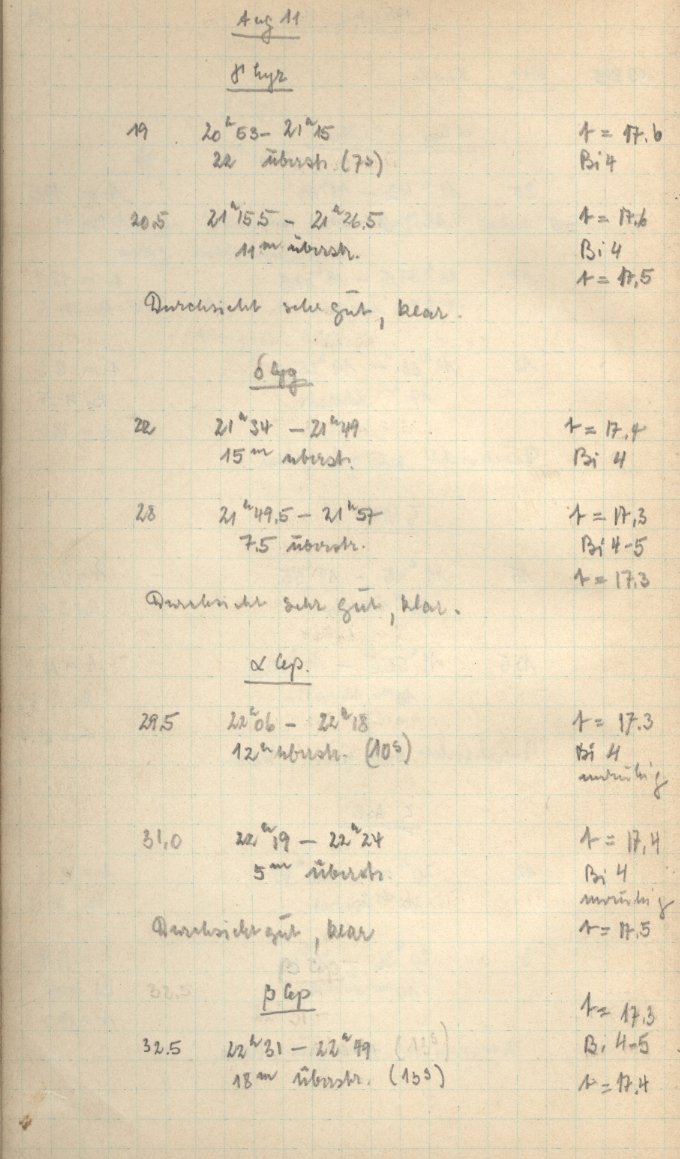 Aug 11
γ Lyr
19 20ʰ53 – 21ʰ15 t = 17.6
22 überstr. (7s) Bi 4
20,5 21ʰ15.5 – 21ʰ26.5 t = 17,6
11ᵐ überstr. Bi 4
t = 17,5
Durchsicht sehr gut, klar.
δ Cyg
22 21ʰ34 – 21ʰ49 t = 17,4
15ᵐ überstr. Bi 4
28 21ʰ49,5 – 21ʰ57 t = 17,3
7.5 überstr. Bi 4-5
t = 17.3
Durchsicht sehr gut, klar.
α Cep.
29.5 22ʰ06 – 22ʰ18 t = 17.3
12ᵐ überstr. (10ˢ) Bi 4
unruhig
31,0 22ʰ19 – 22ʰ24 t = 17,4
5ᵐ überstr. Bi 4
unruhig
Durchsicht gut, klar t = 17,5
β Cep
t = 17.3
32.5 22ʰ31 – 22ʰ49 (13ˢ) Bi 4-5
18ᵐ überstr. (13ˢ) t = 17.4